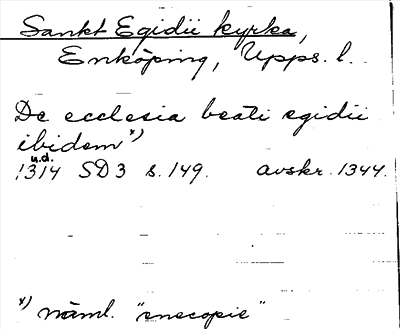 Sankt Egidii kyrka,
Enköping, Upps. l.
De ecclesia beati egidii
ibidem *)
u.d.
1314 SD 3 s. 149. avskr. 1344.
*) näml. "enecopie"